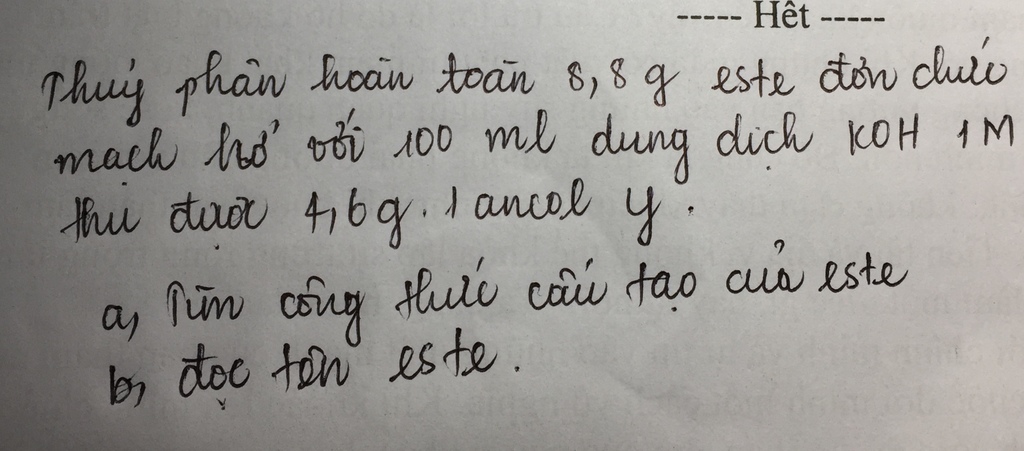 ----- Hết -----
Thuỷ phân hoàn toàn 8,8 g este đơn chức
mạch hở với 100 ml dung dịch KOH 1M
thu được 4,6g. 1 ancol y.
a, Tìm công thức cấu tạo của este
b, đọc tên este.